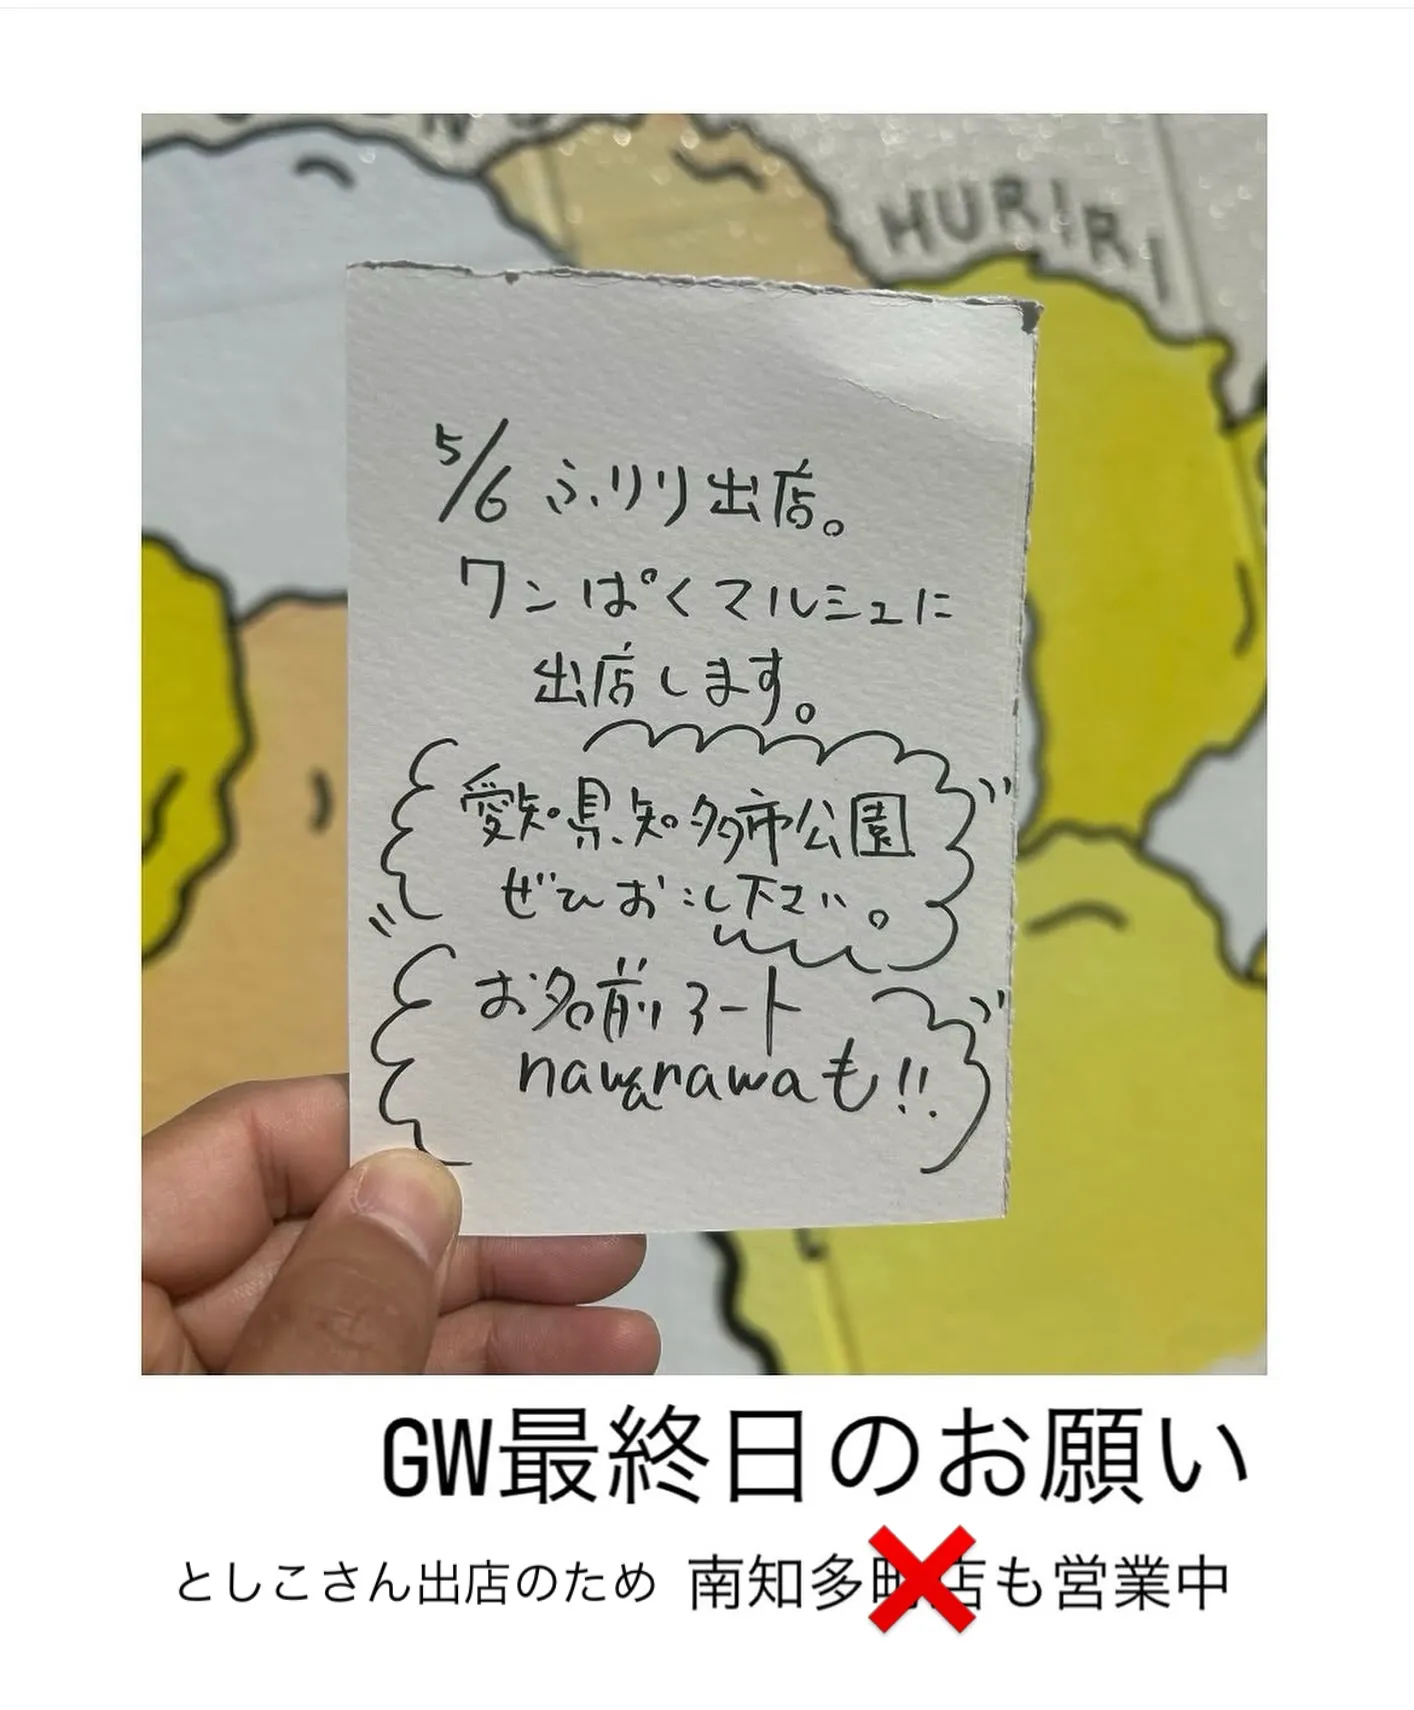 HURIRI
5/6 ふりり出店。
ワンぱくマルシェに
出店します。
愛知県知多市公園
ぜひお越し下さい。
お名前アート
nawanawaも!!
GW最終日のお願い
としこさん出店のため 南知多町店も営業中